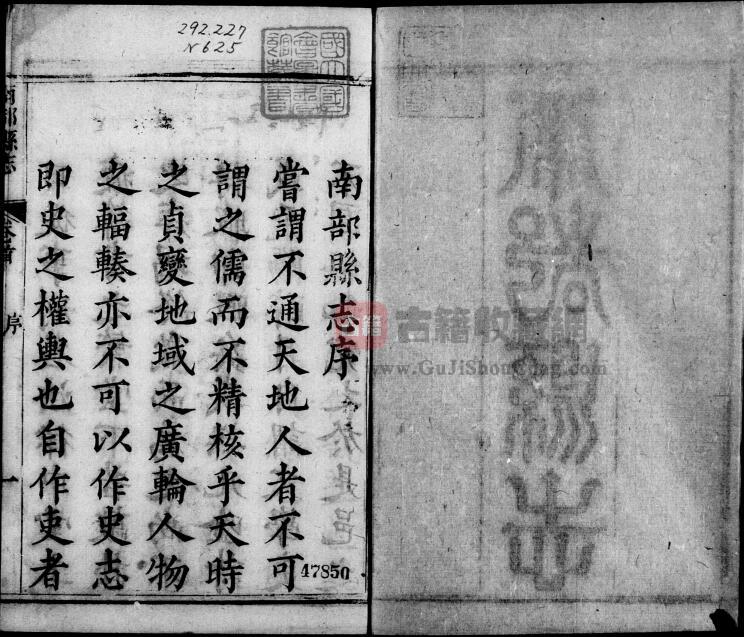 292.227
N625
南部縣志序
嘗謂不通天地人者不可
謂之儒而不精核乎天時
之貞變地域之廣輪人物
之輻輳亦不可以作史志
即史之權輿也自作吏者
南部縣志
卷首
序
一
47850
古籍收藏網
www.GuJiShouCang.com